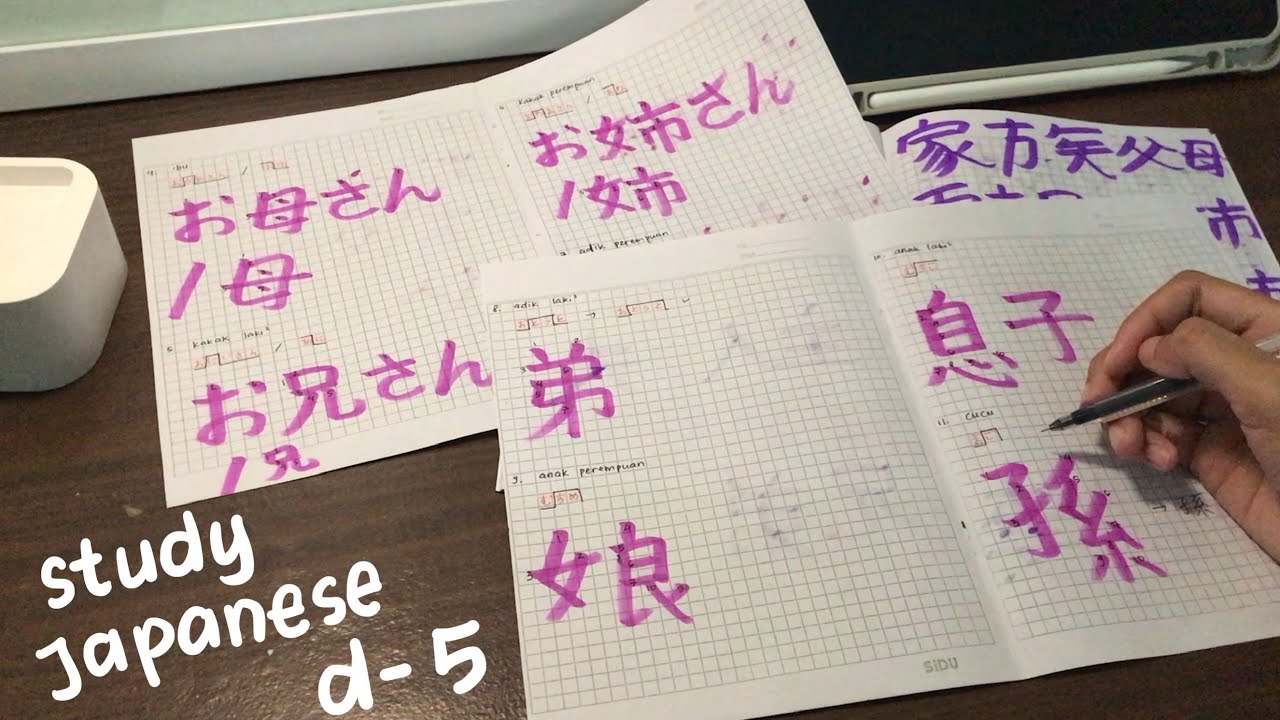 4. ibu
お母さん
/母
5. kakak laki²
お兄さん
/兄
6. kakak perempuan
お姉さん
/姉
7. adik perempuan
8. adik laki²
弟
9. anak perempuan
娘
10. anak laki²
息子
11. cucu
孫
→ 孫
家方矢父母
市
SiDU
study
Japanese
d-5